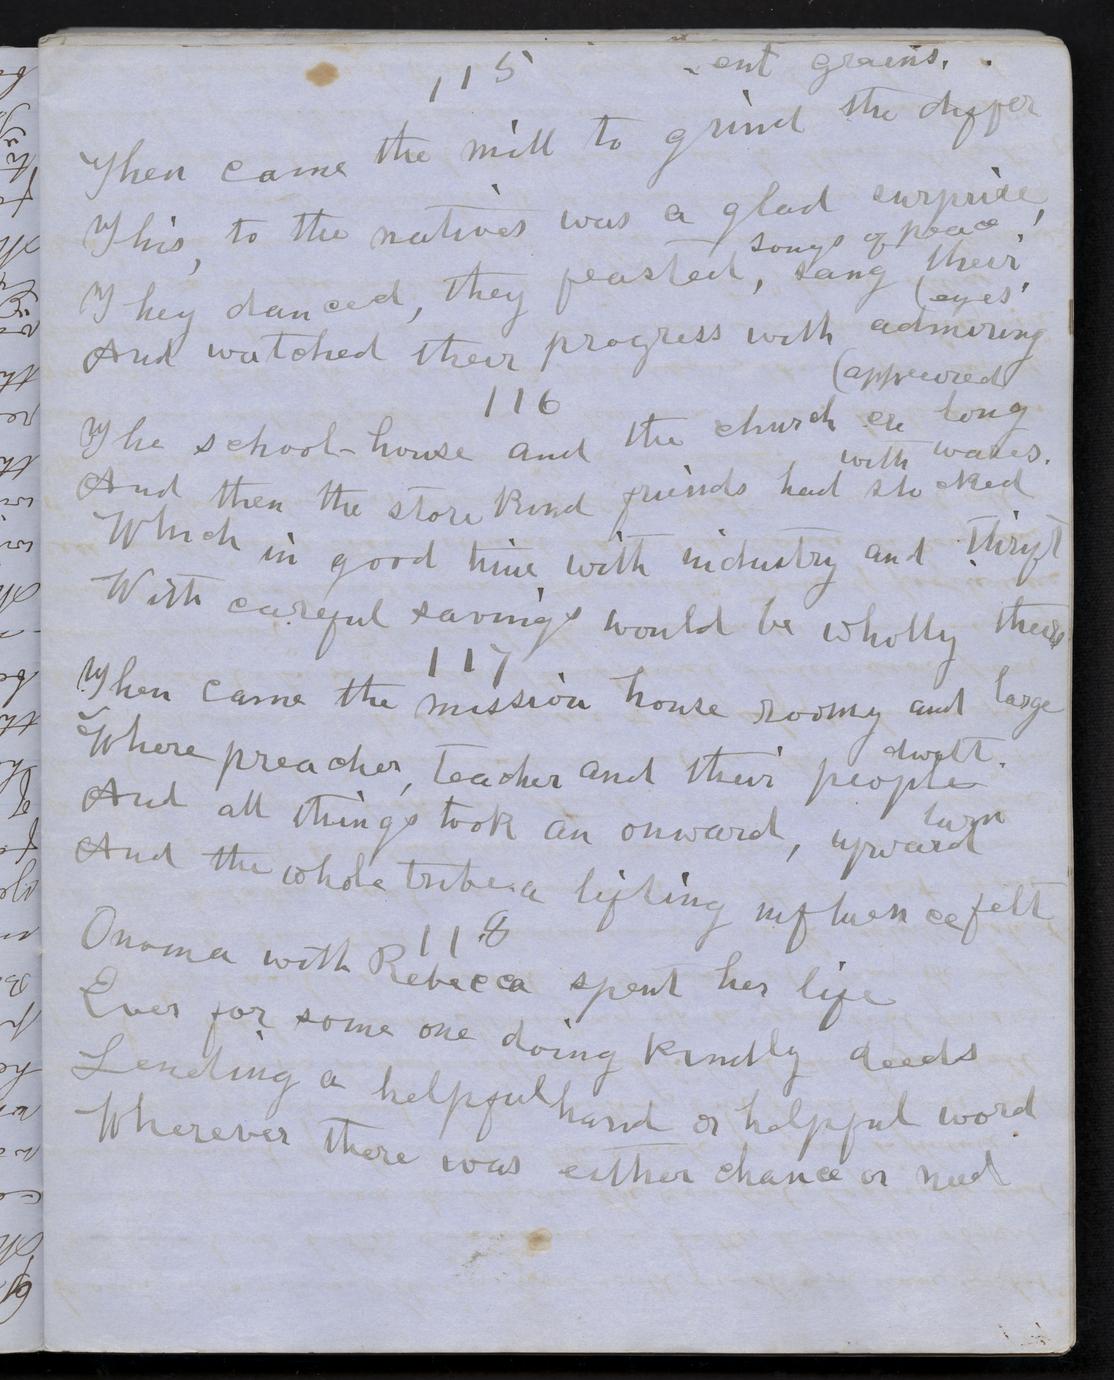 115
Then came the mill to grind the differ
-ent grains.
This, to the natives was a glad surprise,
They danced, they feasted, sang their
songs of peace,
And watched their progress with admiring
(eyes.
116
The school-house and the church ere long
(appeared
And then the store kind friends had stocked
with wares.
Which in good time with industry and thrift
With careful savings would be wholly theirs
117
Then came the mission house roomy and large
Where preacher, teacher and their people
dwelt.
And all things took an onward, upward
turn
And the whole tribe a lifting influence felt
118
Onoma with Rebecca spent her life
Ever for some one doing kindly deeds
Lending a helpful hand or helpful word
Wherever there was either chance or need